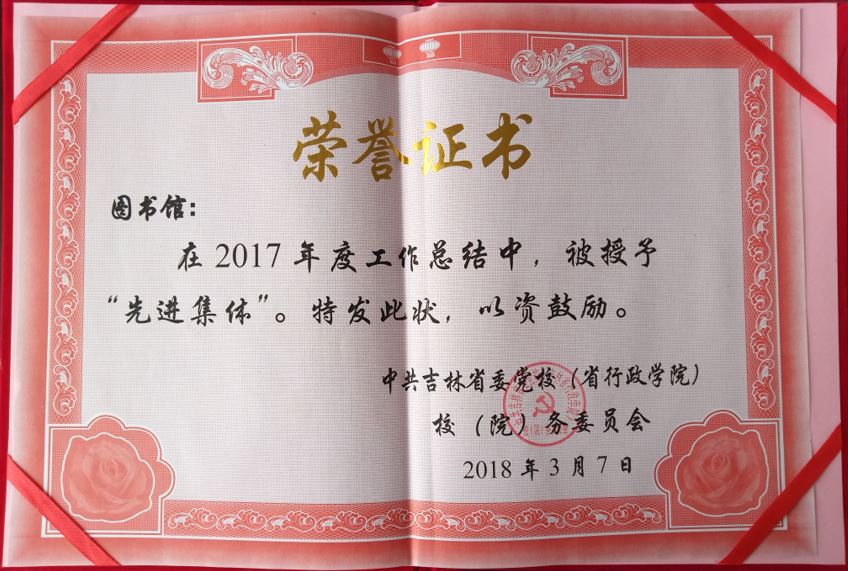 荣誉证书
图书馆：
在2017年度工作总结中，被授予
“先进集体”。特发此状，以资鼓励。
中共吉林省委党校（省行政学院）
校（院）务委员会
2018年3月7日